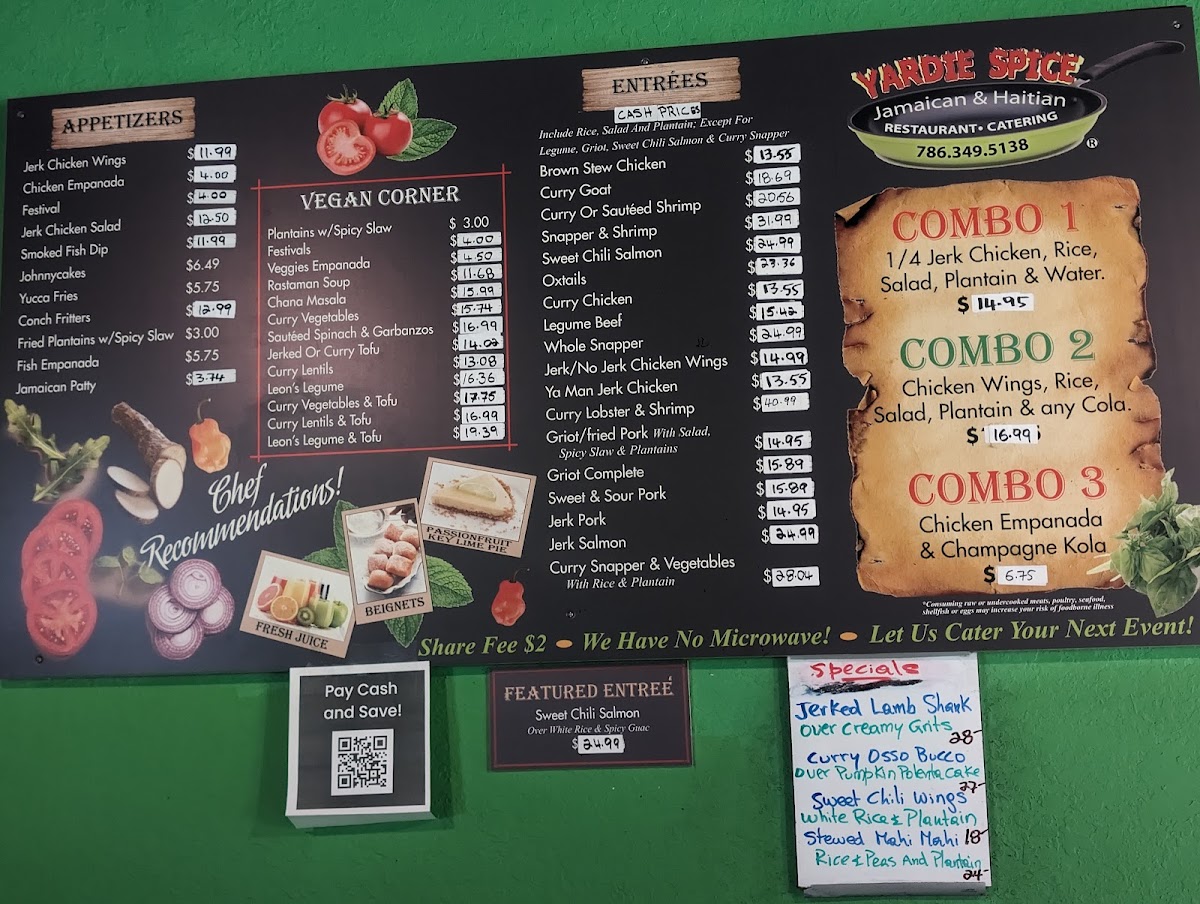 APPETIZERS
Jerk Chicken Wings $11.99
Chicken Empanada $4.00
Festival $4.00
Jerk Chicken Salad $12.50
Smoked Fish Dip $11.99
Johnnycakes $6.49
Yucca Fries $5.75
Conch Fritters $12.99
Fried Plantains w/Spicy Slaw $3.00
Fish Empanada $5.75
Jamaican Patty $3.74
VEGAN CORNER
Plantains w/Spicy Slaw $ 3.00
Festivals $4.00
Veggies Empanada $4.50
Rastaman Soup $11.68
Chana Masala $15.99
Curry Vegetables $15.74
Sautéed Spinach & Garbanzos $16.99
Jerked Or Curry Tofu $14.02
Curry Lentils $13.08
Leon's Legume $16.36
Curry Vegetables & Tofu $17.75
Curry Lentils & Tofu $16.99
Leon's Legume & Tofu $19.39
Chef
Recommendations!
FRESH JUICE
BEIGNETS
PASSIONFRUIT
KEY LIME PIE
ENTRÉES
CASH PRICES
Include Rice, Salad And Plantain; Except For
Legume, Griot, Sweet Chili Salmon & Curry Snapper
Brown Stew Chicken $13.55
Curry Goat $18.69
Curry Or Sautéed Shrimp $20.56
Snapper & Shrimp $31.99
Sweet Chili Salmon $24.99
Oxtails $23.36
Curry Chicken $13.55
Legume Beef $15.42
Whole Snapper $24.99
Jerk/No Jerk Chicken Wings $14.99
Ya Man Jerk Chicken $13.55
Curry Lobster & Shrimp $40.99
Griot/fried Pork With Salad,
Spicy Slaw & Plantains $14.95
Griot Complete $15.89
Sweet & Sour Pork $15.89
Jerk Pork $14.95
Jerk Salmon $24.99
Curry Snapper & Vegetables
With Rice & Plantain $28.04
YARDIE SPICE
Jamaican & Haitian
RESTAURANT• CATERING
786.349.5138
®
COMBO 1
1/4 Jerk Chicken, Rice,
Salad, Plantain & Water.
$ 14.95
COMBO 2
Chicken Wings, Rice,
Salad, Plantain & any Cola.
$ 16.99
COMBO 3
Chicken Empanada
& Champagne Kola
$ 6.75
*Consuming raw or undercooked meats, poultry, seafood,
shellfish or eggs may increase your risk of foodborne illness
Share Fee $2 • We Have No Microwave! • Let Us Cater Your Next Event!
Pay Cash
and Save!
FEATURED ENTREÉ
Sweet Chili Salmon
Over White Rice & Spicy Guac
$24.99
Specials
Jerked Lamb Shank
over Creamy Grits
28-
Curry Osso Bucco
over Pumpkin Polenta cake
27-
Sweet Chili Wings
White Rice & Plantain
18-
Stewed Mahi Mahi
Rice & Peas And Plantain
24-